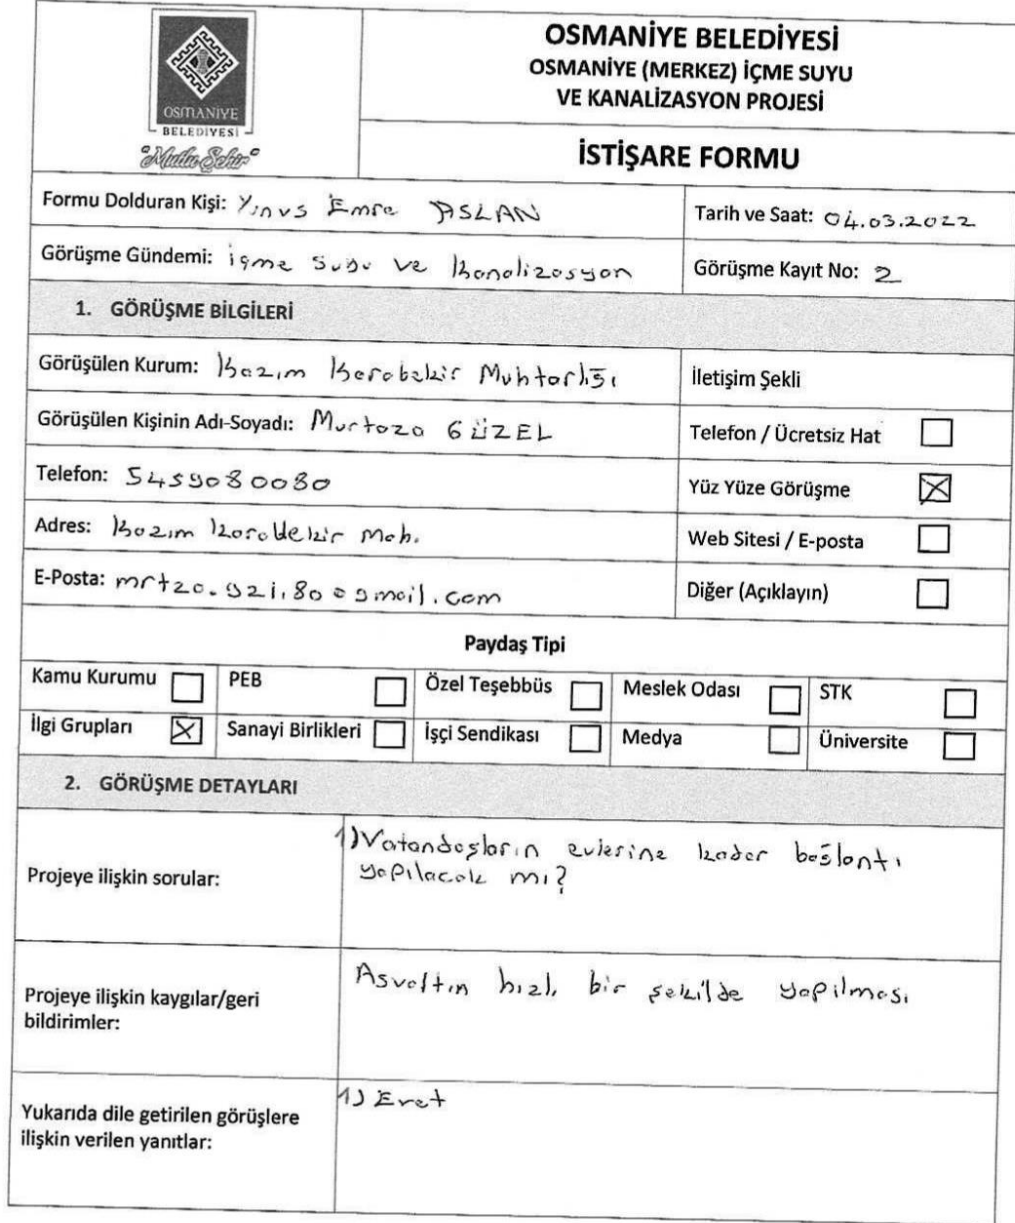 OSMANİYE
BELEDİYESİ
"Mutlu Şehir"
OSMANİYE BELEDİYESİ
OSMANİYE (MERKEZ) İÇME SUYU
VE KANALİZASYON PROJESİ
İSTİŞARE FORMU
Formu Dolduran Kişi: Yunus Emre ASLAN
Tarih ve Saat: 04.03.2022
Görüşme Gündemi: içme suyu ve Kanalizasyon
Görüşme Kayıt No: 2
1. GÖRÜŞME BİLGİLERİ
Görüşülen Kurum: Kazım Karabekir Muhtarlığı
İletişim Şekli
Görüşülen Kişinin Adı-Soyadı: Murtaza GÜZEL
Telefon / Ücretsiz Hat
Telefon: 5459080080
Yüz Yüze Görüşme
Adres: Kazım Karabekir Mah.
Web Sitesi / E-posta
E-Posta: mrtza.gzl.80@gmail.com
Diğer (Açıklayın)
Paydaş Tipi
Kamu Kurumu PEB Özel Teşebbüs Meslek Odası STK
İlgi Grupları Sanayi Birlikleri İşçi Sendikası Medya Üniversite
2. GÖRÜŞME DETAYLARI
Projeye ilişkin sorular:
1) Vatandaşların evlerine kadar bağlantı
yapılacak mı?
Projeye ilişkin kaygılar/geri
bildirimler:
Asvaltın hızlı bir şekilde yapılması
Yukarıda dile getirilen görüşlere
ilişkin verilen yanıtlar:
1) Evet